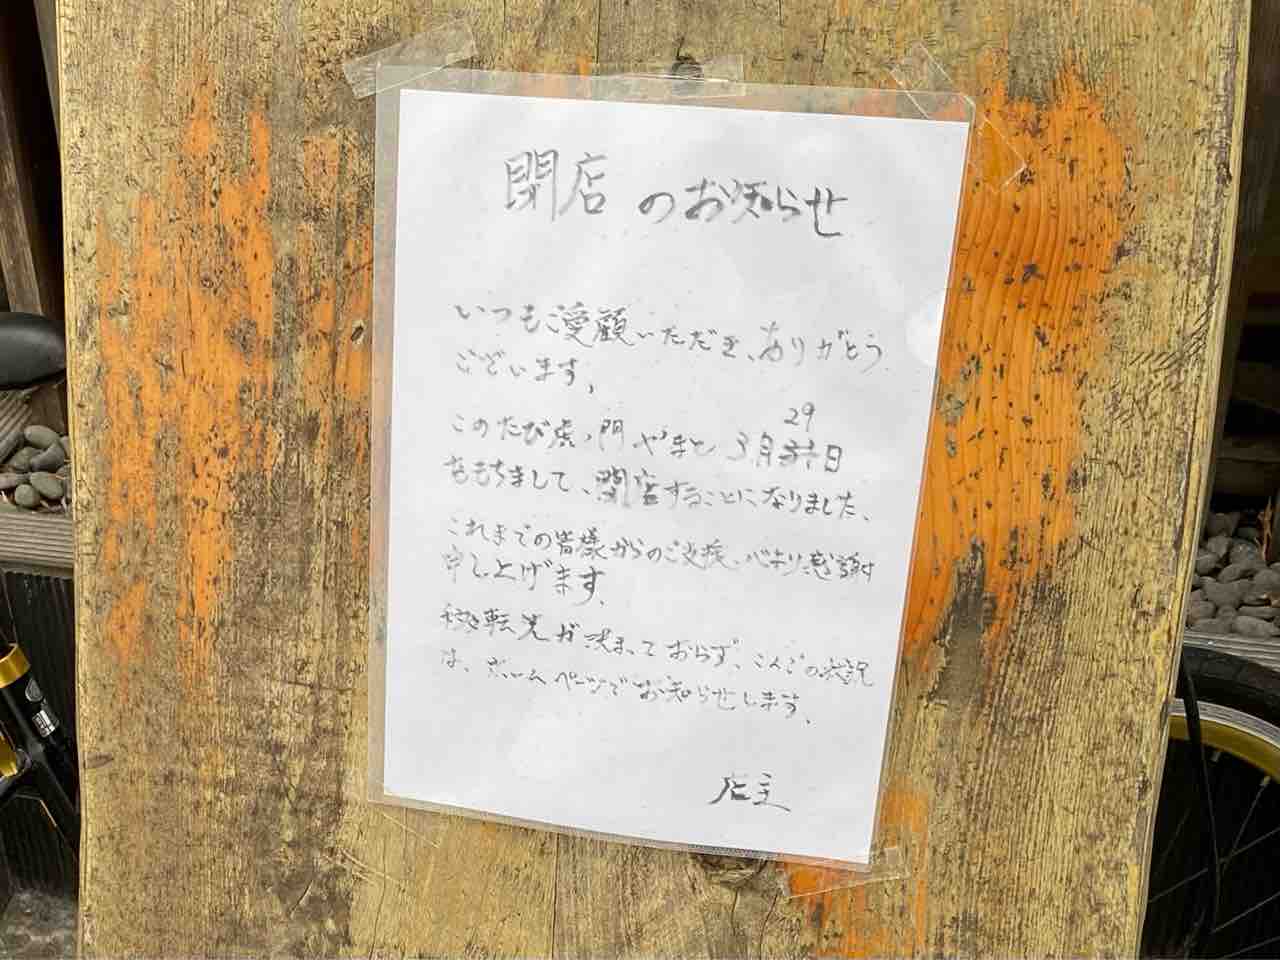 閉店のお知らせ
いつもご愛顧いただき、ありがとう
ございます。
このたび虎ノ門 やまと 3月29日
をもちまして、閉店することになりました。
これまでの皆様からのご支援、心より感謝
申し上げます。
移転先が決まっておらず、こんごの状況
は、ホームページでお知らせします。
店主